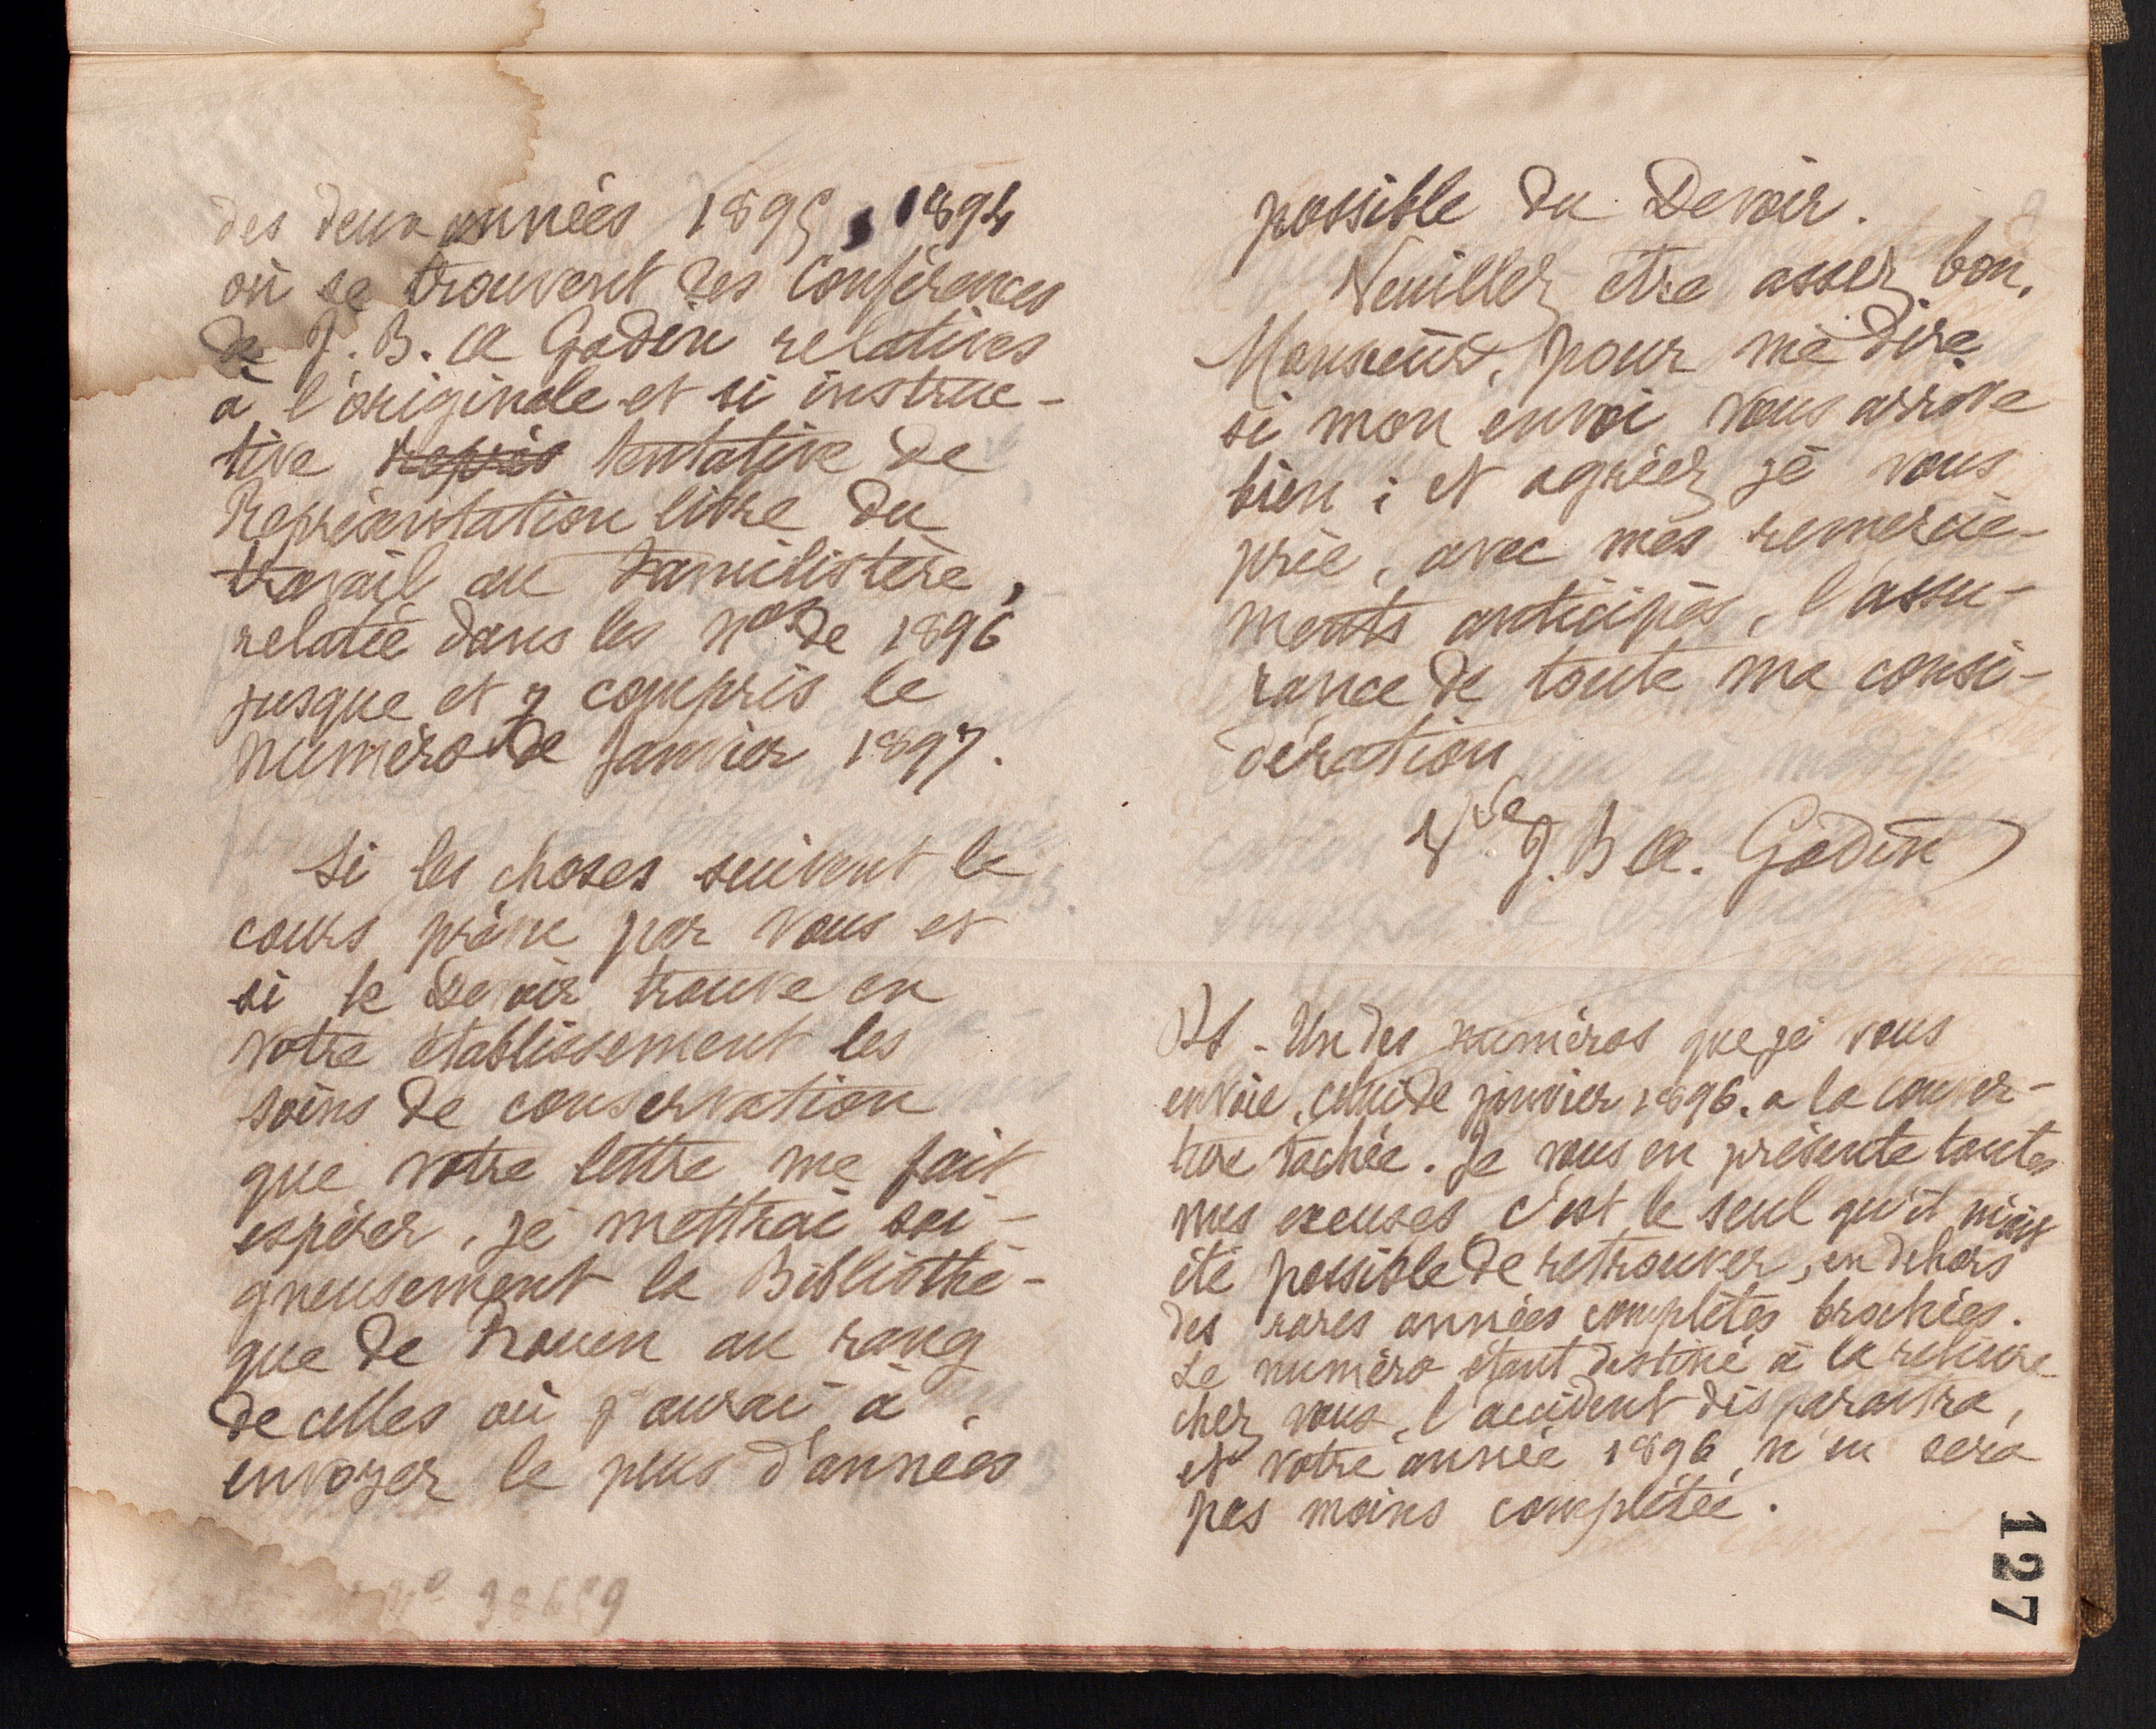 des deux années 1895, 1894
où se trouvent des conférences
de J. B. A Godin relatives
à l'originale et si instruc-
tive repris tentative de
Représentation libre du
travail au Familistère,
relatée dans les nos de 1896
jusque et y compris le
numéro de Janvier 1897.
Si les choses suivent le
cours prévu par vous et
si le Devoir trouve en
votre établissement les
soins de conservation
que votre lettre me fait
espérer, je mettrai soi-
gneusement la Bibliothè-
que de Rouen au rang
de celles où j'aurai à
envoyer le plus d'années
possible du Devoir.
Veuillez être assez bon,
Monsieur, pour me dire
si mon envoi vous arrive
bien ; et agréez je vous
prie, avec mes remercie-
ments anticipés, l'assu-
rance de toute ma consi-
dération
Vve J. B A. Godin
PS - Un des numéros que je vous
envoie, celui de janvier 1896. a la couver-
ture tachée. Je vous en présente toutes
mes excuses c'est le seul qu'il m'ait
été possible de retrouver, en dehors
des rares années complètes brochées.
Le numéro étant destiné à la reliure
chez vous, l'accident disparaîtra,
et votre année 1896 n'en sera
pas moins complétée.
127